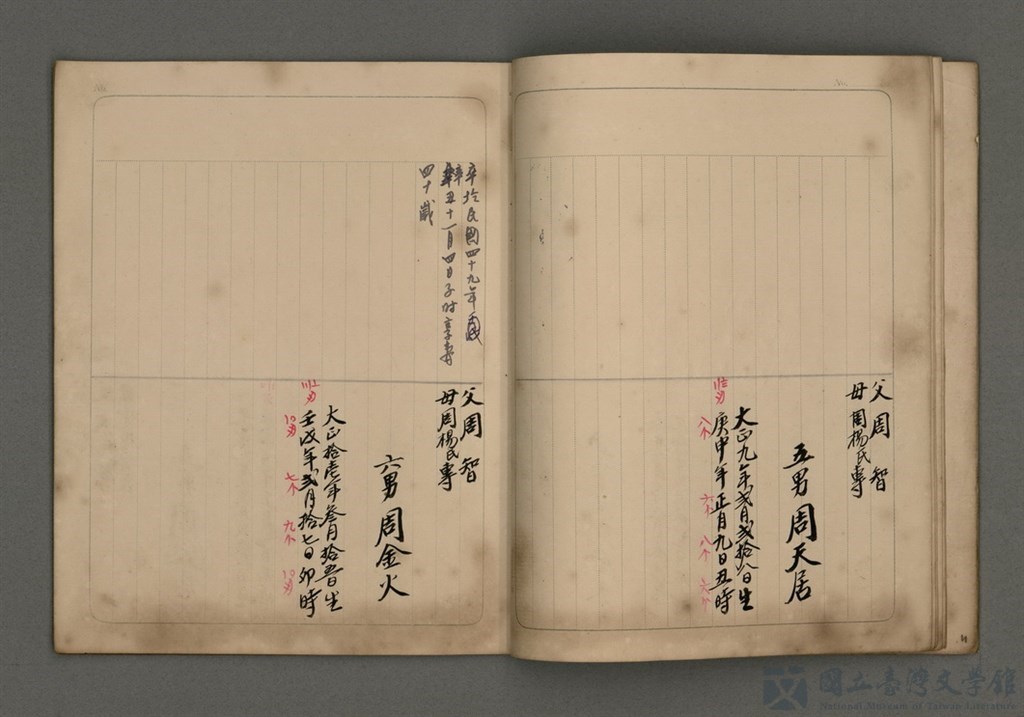 父周智
母周楊氏專
五男周天居
大正九年貳月貳拾八日生
庚申年正月九日丑時
八不
六不
八不
六不
卒於民國四十九年歲
辛丑十一月四日子时享壽
四十歲
父周智
母周楊氏專
六男周金火
大正拾壱年叁月拾五日生
壬戌年貳月拾七日卯時
七不
九不
國立臺灣文學館
National Museum of Taiwan Literature